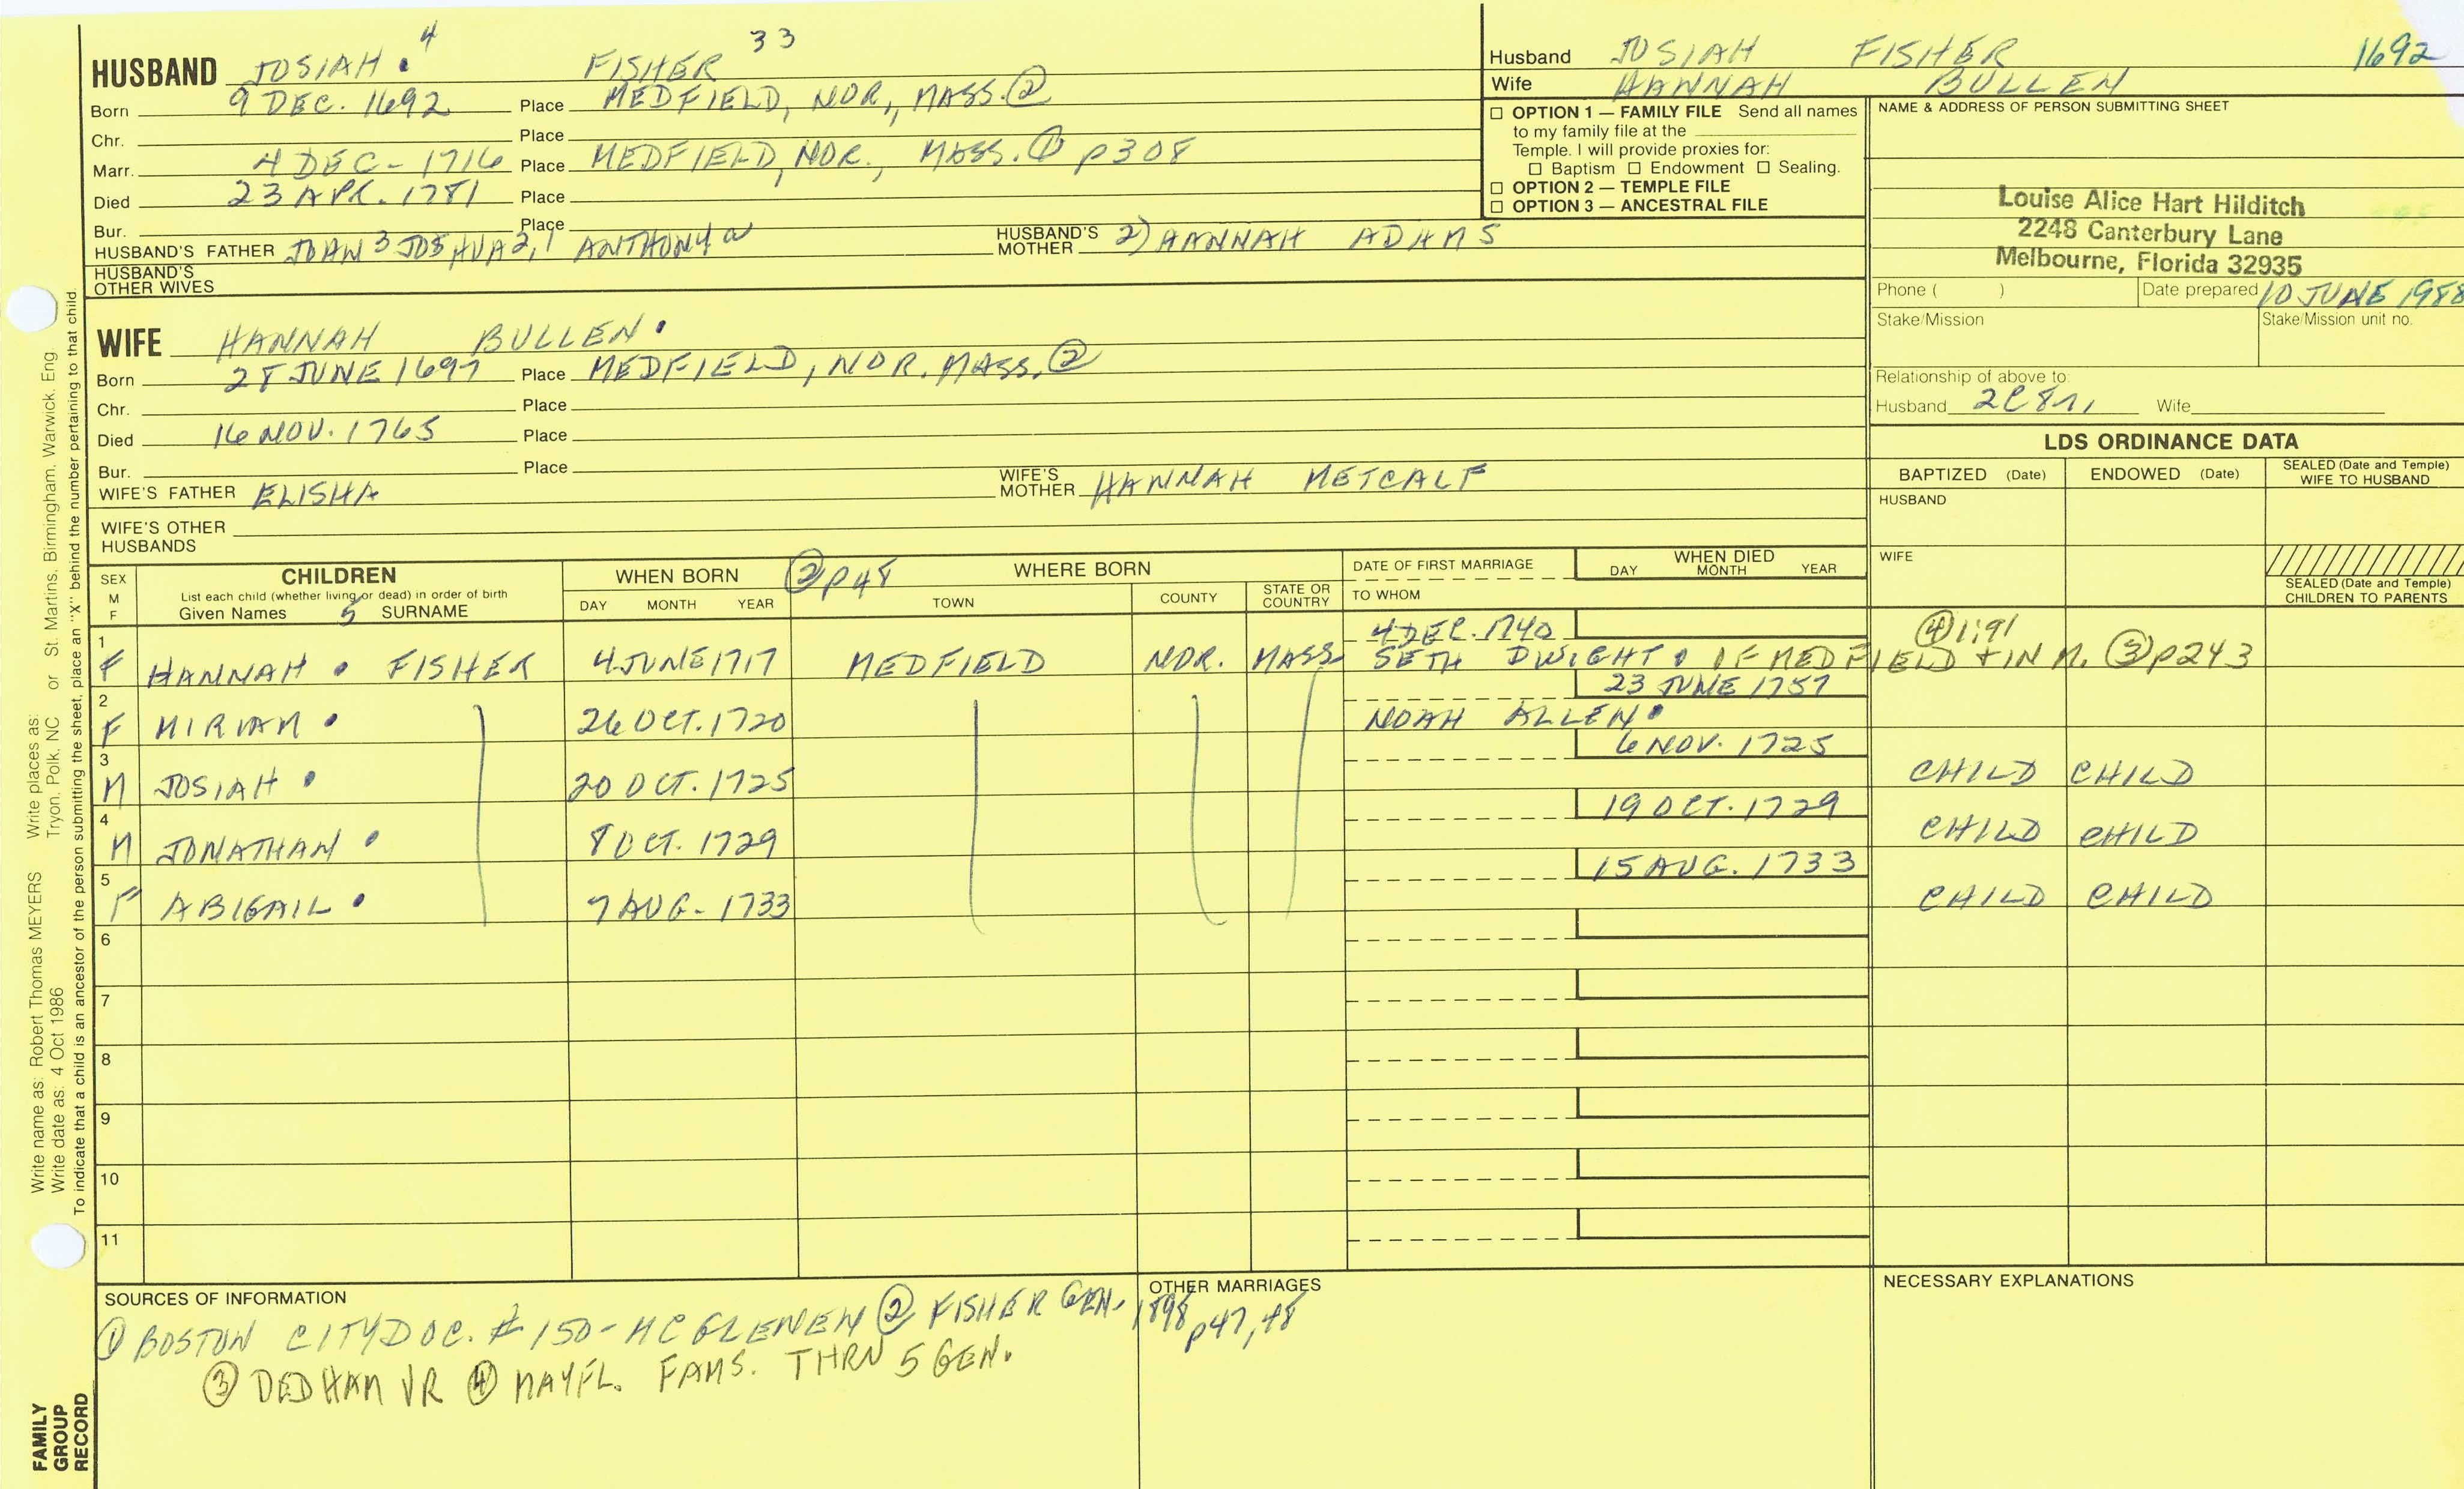 4 33
HUSBAND JOSIAH. FISHER
Born 9 DEC. 1692 Place MEDFIELD, NOR., MASS. ②
Chr. Place
Marr. 4 DEC - 1716 Place MEDFIELD, NOR., MASS. ① p308
Died 23 APR. 1781 Place
Bur. Place
HUSBAND'S FATHER JOHN 3 JOSHUA 2,1 ANTHONY a HUSBAND'S MOTHER 2) HANNAH ADAMS
HUSBAND'S OTHER WIVES
Husband JOSIAH FISHER 1692
Wife HANNAH BULLEN
☐ OPTION 1 — FAMILY FILE Send all names
to my family file at the
Temple. I will provide proxies for:
☐ Baptism ☐ Endowment ☐ Sealing.
☐ OPTION 2 — TEMPLE FILE
☐ OPTION 3 — ANCESTRAL FILE
NAME & ADDRESS OF PERSON SUBMITTING SHEET
Louise Alice Hart Hilditch
2248 Canterbury Lane
Melbourne, Florida 32935
Phone ( ) Date prepared 10 JUNE 1988
Stake/Mission Stake/Mission unit no.
Relationship of above to:
Husband 2C8r, Wife
WIFE HANNAH BULLEN.
Born 28 JUNE 1697 Place MEDFIELD, NOR. MASS. ②
Chr. Place
Died 16 NOV. 1765 Place
Bur. Place
WIFE'S FATHER ELISHA WIFE'S MOTHER HANNAH METCALF
WIFE'S OTHER HUSBANDS
LDS ORDINANCE DATA
BAPTIZED (Date) ENDOWED (Date) SEALED (Date and Temple) WIFE TO HUSBAND
HUSBAND
WIFE
SEALED (Date and Temple) CHILDREN TO PARENTS
SEX M F CHILDREN List each child (whether living or dead) in order of birth Given Names 5 SURNAME
WHEN BORN DAY MONTH YEAR
② p48 WHERE BORN TOWN COUNTY STATE OR COUNTRY
DATE OF FIRST MARRIAGE TO WHOM
WHEN DIED DAY MONTH YEAR
4 DEC. 1740 ④ 1:91
1 F HANNAH . FISHER 4 JUNE 1717 MEDFIELD NOR. MASS. SETH DWIGHT . OF MEDFIELD + IN M. ③ p243
23 JUNE 1757
2 F MIRIAM . 26 OCT. 1720 NOAH ALLEN.
6 NOV. 1725
3 M JOSIAH . 20 OCT. 1725 CHILD CHILD
19 OCT. 1729
4 M JONATHAN . 8 OCT. 1729 CHILD CHILD
15 AUG. 1733
5 F ABIGAIL . 7 AUG - 1733 CHILD CHILD
6
7
8
9
10
11
SOURCES OF INFORMATION
① BOSTON CITY DOC. # 150 - MCGLENEN ② FISHER GEN. 1898 p47, 48
③ DEDHAM VR ④ MAYFL. FAMS. THRU 5 GEN.
OTHER MARRIAGES
NECESSARY EXPLANATIONS
Write name as: Robert Thomas MEYERS Write places as: Tryon, Polk, NC or St. Martins, Birmingham, Warwick, Eng.
Write date as: 4 Oct 1986
To indicate that a child is an ancestor of the person submitting the sheet, place an "X" behind the number pertaining to that child.
FAMILY
GROUP
RECORD